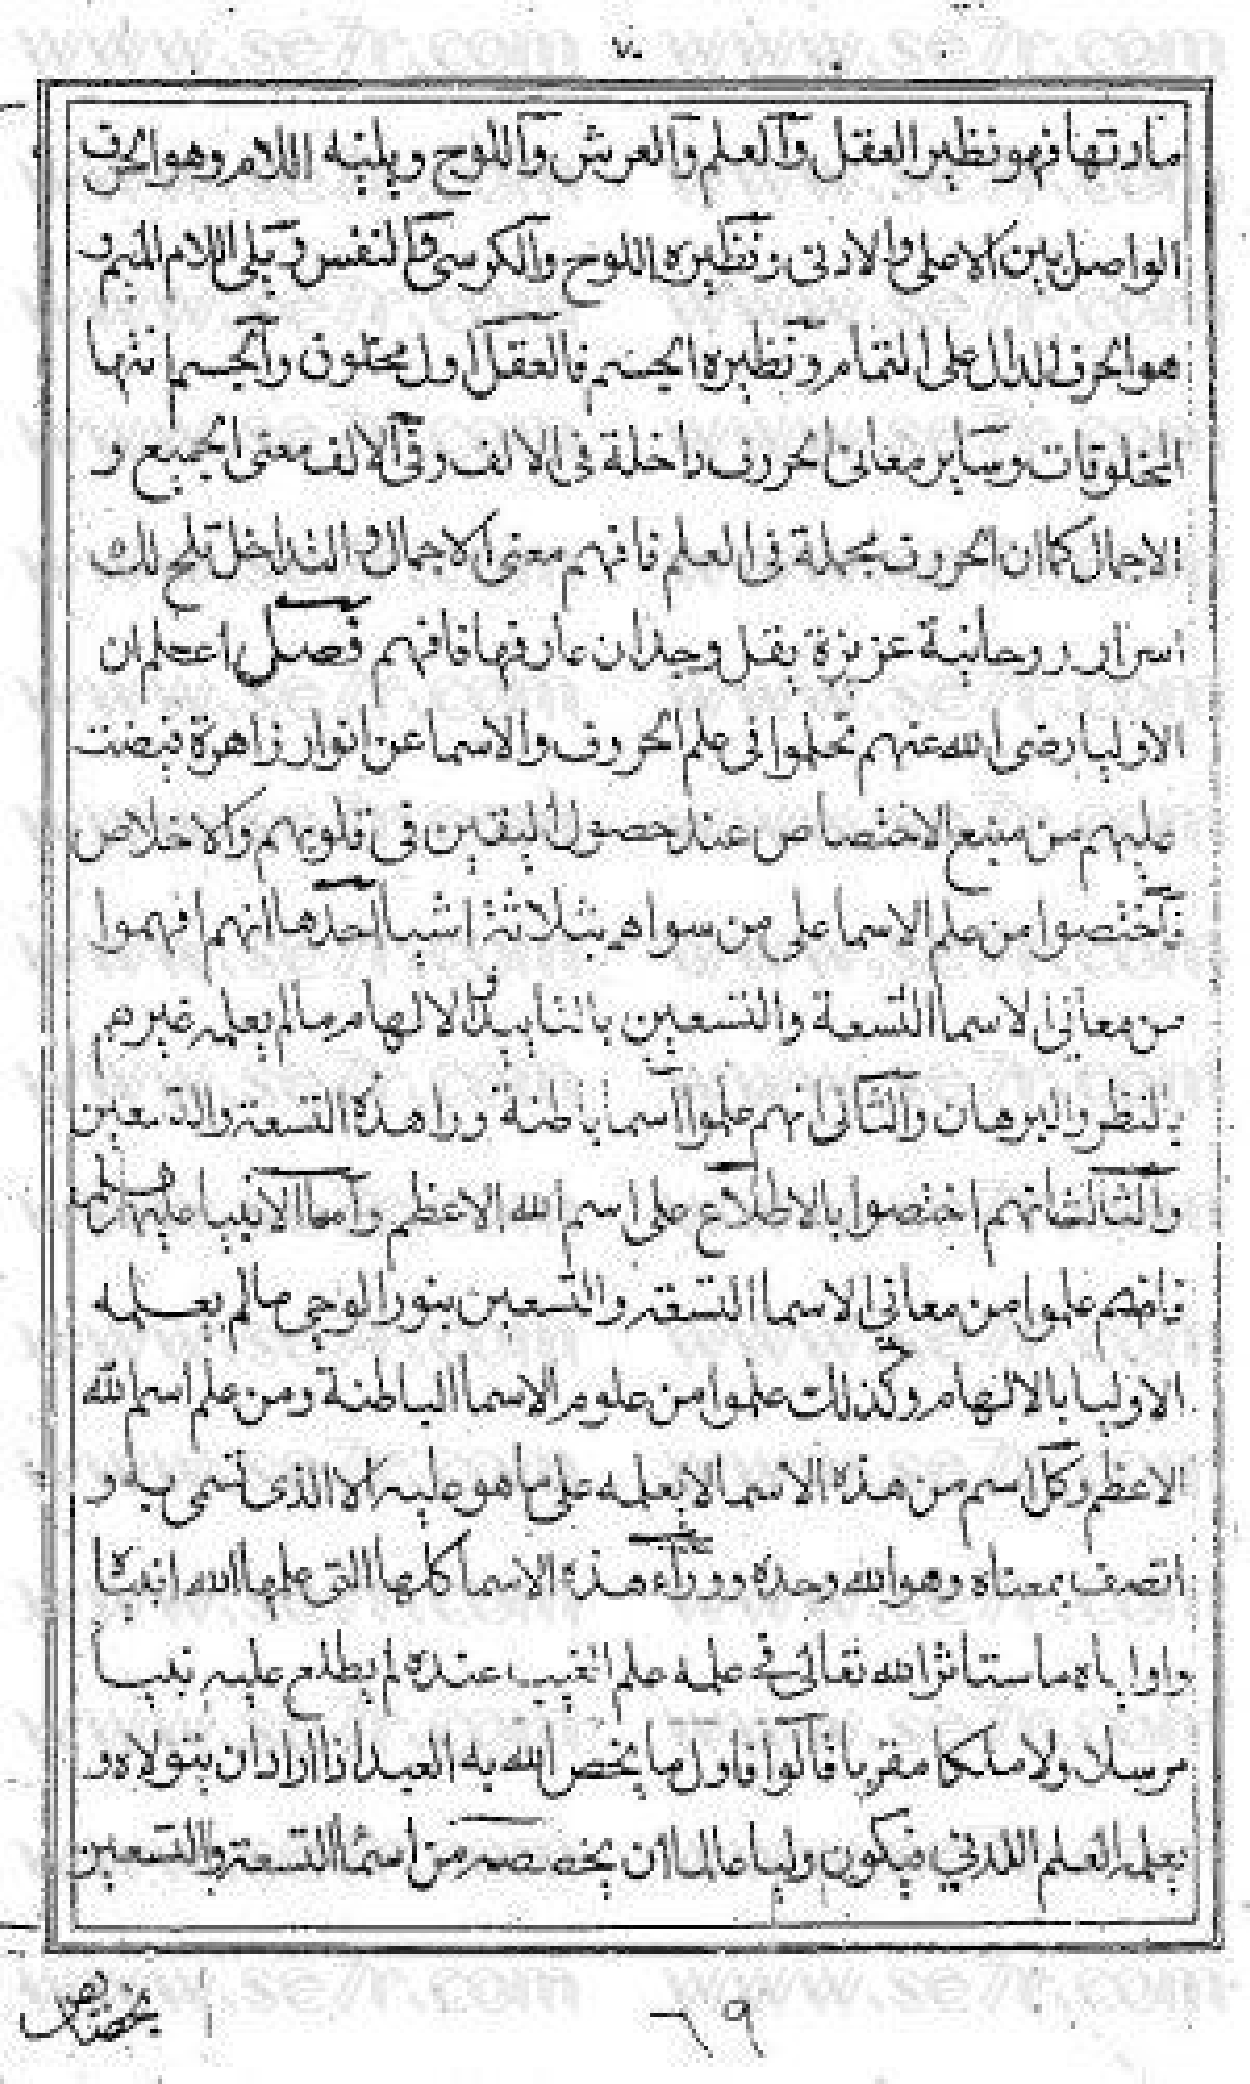 www.se7r.com www.se7r.com
٧٠
مادتها فهو نظير العقل والعلم والعرش واللوح ويليه اللام وهو الحرف
الواصل بين الاعلى والادنى ونظيره اللوح والكرسى والنفس ويلى اللام الميم و
هو الحرف الدال على التمام ونظيره الجسم فالعقل اول مخلوق والجسم انتها
المخلوقات وساير معانى الحروف داخلة فى الالف وفى الالف معنى الجميع و
الاجمال كما ان الحروف مجملة فى العلم فافهم معنى الاجمال والتداخل تلح لك
اسرار روحانية عزيزة يقل وجدان عارفها فافهم فصل اعلم ان
الاوليا رضى الله عنهم تكلموا فى علم الحروف والاسما عن انوار زاهرة فيضت
عليهم من منبع الاختصاص عند حصول اليقين فى قلوبهم والاخلاص
فاختصوا من علم الاسما على من سواهم بثلاثة اشيا احدها انهم افهموا
من معانى الاسما التسعة والتسعين بالتاييد والالهام مالم يعلمه غيرهم
بالنظر والبرهان والثانى انهم علموا اسما باطنة ورا هذه التسعة والتسعين
والثالث انهم اختصوا بالاطلاع على اسم الله الاعظم واما الانبيا عليهم
فانهم علموا من معانى الاسما التسعة والتسعين بنور الوحى مالم يعلمه
الاوليا بالالهام وكذلك علموا من علوم الاسما الباطنة ومن علم اسم الله
الاعظم وكل اسم من هذه الاسما لا يعلمه على ما هو عليه الا الذى تسمى به و
اتصف بمعناه وهو الله وحده ووراء هذه الاسما كلها التى علمها الله انبياه
واولياه ما استاثر الله تعالى فى علمه علم الغيب عنده لم يطلع عليه نبيا
مرسلا ولا ملكا مقربا قالوا فاول ما يخص الله به العبد اذا اراد ان يتولاه و
يعلمه العلم اللدنى فيكون وليا عالما ان يخصصه من اسما التسعة والتسعين
٦٩
www.se7r.com www.se7r.com